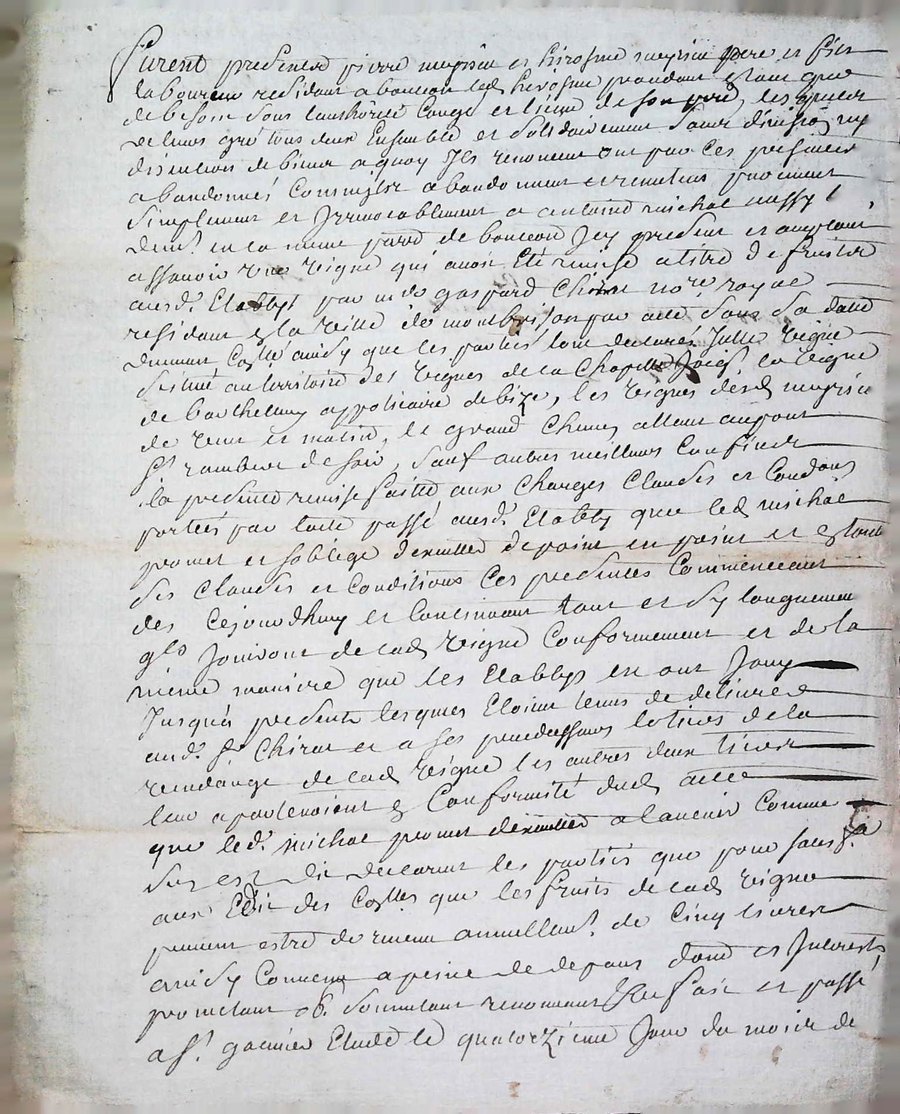 Furent presents pierre meyrieu et hierosme meyrieu pere et fils
laboureur residant a bonson led hierosme procedant en tant que
de besoin sous lauthorité congé et licence de son pere, lesquels
de leurs gré tous deux Ensemble et solidairement sans division ny
discution de biens a quoy Ils renoncent ont par ces presentes
abandonnés comme Ils abandonnent et remettent purement
simplement et Irrevocablement a antoine michac
demt en la meme parr de bonson Icy present et acceptant
assavoir une vigne qui avoit Eté remise a titre de fruiter
ausd. par me gaspard Chirat nore royal
residant en la ville de montbrison par acte sous sa datte
duement Collé ainsy que les parties lont declarés Jcelle vigne
située au territoire des vignes de la Chapelle Joigt la vigne
de barthelemy appoticaire de bize, les vignes desd meyrieu
de vent et matin, le grand Chemin allant au pont
St rambert de soir, sauf autres meilleurs confins
la presente remise faitte aux Charges Clauses et Condons
portées par lacte passé ausd. que led michac
promet et soblige dexecuter de point en point et en toutes
ses Clauses et Conditions Ces presentes Commenceant
des Cejourdhuy et Continuant tant et sy longuement
qls Jouiront de lad vigne Conformement et de la
meme maniere que les en ont Jouy
Jusqua present lesquels Etoient tenus de delivrer
aud. Sr Chirat et a ses predecesseurs le tiers de la
vendange de lad vigne les autres deux tiers
leur apartenoient en Conformité dud acte
que led. michac promet dexecuter a lavenir Comme
sus est dit declarant les parties que pour satisfe
aux Edits des Clles que les fruits de lad vigne
peuvent estre de revenu annuellemt. de Cinq livres
ainsy Convenu a peine de depans doms et Interests
promettant ob. soumetant renonceant fait et passé
a St. Etude le quatorzieme Jour du mois de